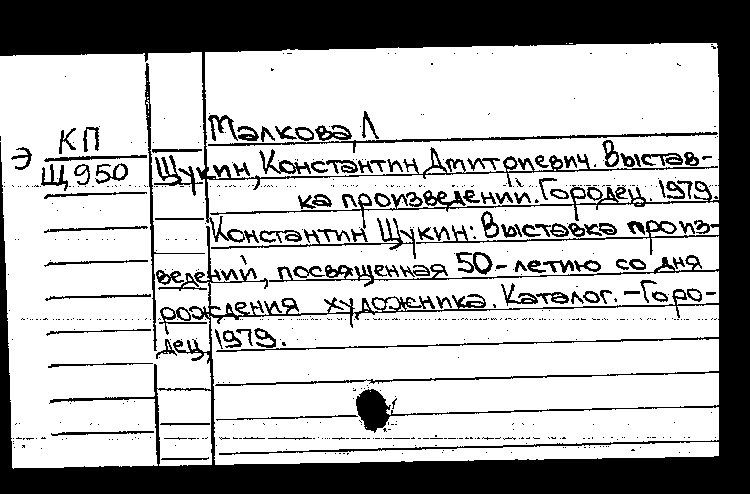 Малкова Л
КП
Э
Щ950
Щукин, Константин Дмитриевич. Выстав-
ка произведений. Городец. 1979.
Константин Щукин: Выставка произ-
ведений, посвященная 50-летию со дня
рождения художника. Каталог. - Горо-
дец, 1979.